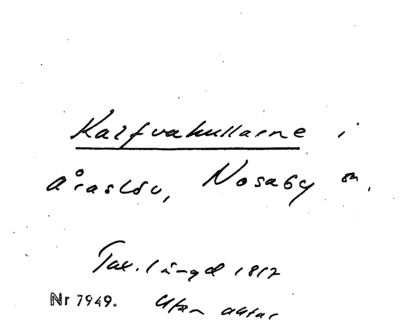 Kalfvahullarne i
Åraslöv, Nosaby sn.
Tax. längd 1812
Nr 7949. Utan aktnr